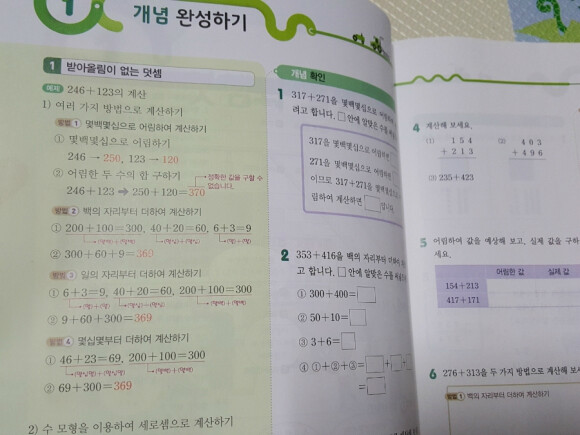 1 개념 완성하기
1 받아올림이 없는 덧셈
예제 246+123의 계산
1) 여러 가지 방법으로 계산하기
방법 1 몇백몇십으로 어림하여 계산하기
① 몇백몇십으로 어림하기
246 → 250, 123 → 120
② 어림한 두 수의 합 구하기
246+123 ➡ 250+120=370
정확한 값을 구할 수 없습니다.
방법 2 백의 자리부터 더하여 계산하기
① 200+100=300, 40+20=60, 6+3=9
(몇백)+(몇백) (몇십)+(몇십) (몇)+(몇)
② 300+60+9=369
방법 3 일의 자리부터 더하여 계산하기
① 6+3=9, 40+20=60, 200+100=300
(몇)+(몇) (몇십)+(몇십) (몇백)+(몇백)
② 9+60+300=369
방법 4 몇십몇부터 더하여 계산하기
① 46+23=69, 200+100=300
(몇십몇)+(몇십몇) (몇백)+(몇백)
② 69+300=369
2) 수 모형을 이용하여 세로셈으로 계산하기
개념 확인
1 317+271을 몇백몇십으로 어림하
려고 합니다. □안에 알맞은 수를
317을 몇백몇십으로 어림하면
271을 몇백몇십으로 어림하면
이므로 317+271을 몇백몇
림하여 계산하면 □입니다.
2 353+416을 백의 자리부터 더하여
고 합니다. □안에 알맞은 수를
① 300+400=□
② 50+10=□
③ 3+6=□
④ ①+②+③=□+□+
=□
4 계산해 보세요.
(1) 1 5 4 (2) 4 0 3
+ 2 1 3 + 4 9 6
(3) 235+423
5 어림하여 값을 예상해 보고, 실제 값을 구하
세요.
어림한 값 실제 값
154+213
417+171
6 276+313을 두 가지 방법으로 계산해 보세
방법 1 백의 자리부터 더하여 계산하기